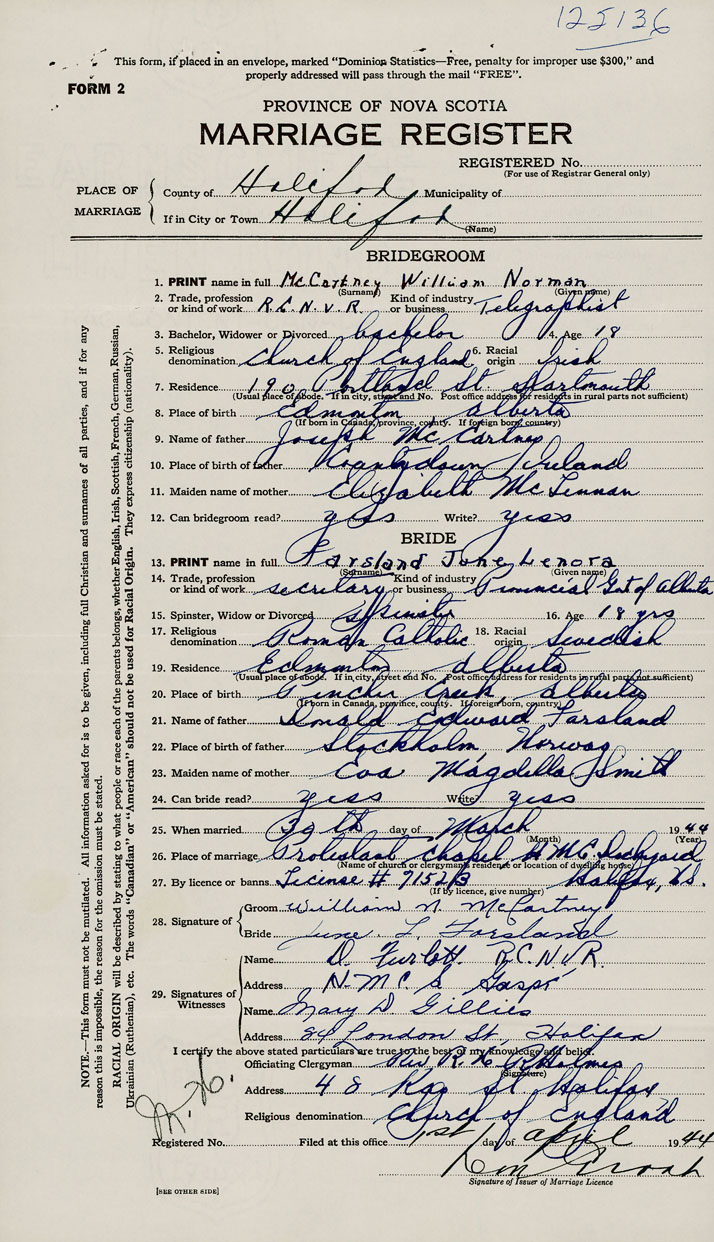 125136
This form, if placed in an envelope, marked "Dominion Statistics—Free, penalty for improper use $300," and
properly addressed will pass through the mail "FREE".
FORM 2
PROVINCE OF NOVA SCOTIA
MARRIAGE REGISTER
REGISTERED No.
(For use of Registrar General only)
PLACE OF MARRIAGE
County of Halifax Municipality of
If in City or Town Halifax
(Name)
BRIDEGROOM
1. PRINT name in full McCartney William Norman
(Surname) (Given name)
2. Trade, profession or kind of work R.C.N.V.R. Kind of industry or business Telegraphist
3. Bachelor, Widower or Divorced bachelor 4. Age 18
5. Religious denomination Church of England 6. Racial origin Irish
7. Residence 190 Portland St. Dartmouth
(Usual place of abode. If in city, street and No. Post office address for residents in rural parts not sufficient)
8. Place of birth Edmonton alberta
(If born in Canada, province, county. If foreign born, country)
9. Name of father Joseph McCartney
10. Place of birth of father Ireland
11. Maiden name of mother Elizabeth McLennan
12. Can bridegroom read? yess Write? yess
BRIDE
13. PRINT name in full Farsland June Lenora
(Surname) (Given name)
14. Trade, profession or kind of work secretary Kind of industry or business Provincial Govt of Alberta
15. Spinster, Widow or Divorced Spinster 16. Age 18 yrs
17. Religious denomination Roman Catholic 18. Racial origin Swedish
19. Residence Edmonton alberta
(Usual place of abode. If in city, street and No. Post office address for residents in rural parts not sufficient)
20. Place of birth Pincher Creek, alberta
(If born in Canada, province, county. If foreign born, country)
21. Name of father Donald Edward Farsland
22. Place of birth of father Stockholm Norway
23. Maiden name of mother Eva Magdella Smith
24. Can bride read? yess Write yess
25. When married 30th day of March 1944
(Month) (Year)
26. Place of marriage Protestant Chapel H.M.C. Dockyard
(Name of church or clergyman's residence or location of dwelling house)
27. By licence or banns License # 71523 Halifax, N.S.
(If by licence, give number)
28. Signature of
Groom William N. McCartney
Bride June L. Farsland
29. Signatures of Witnesses
Name D. Furlott R.C.N.V.R.
Address H.M.C.S Gaspé
Name Mary D Gillies
Address 84 London St, Halifax
I certify the above stated particulars are true to the best of my knowledge and belief.
Officiating Clergyman Rev R. Holmes
(Signature)
Address 48 St Halifax
Religious denomination Church of England
Registered No. Filed at this office 1st day of april 1944
Signature of Issuer of Marriage Licence
[SEE OTHER SIDE]
NOTE.—This form must not be mutilated. All information asked for is to be given, including full Christian and surnames of all parties, and if for any
reason this is impossible, the reason for the omission must be stated.
RACIAL ORIGIN will be described by stating to what people or race each of the parents belongs, whether English, Irish, Scottish, French, German, Russian,
Ukrainian (Ruthenian), etc. The words "Canadian" or "American" should not be used for Racial Origin. They express citizenship (nationality).